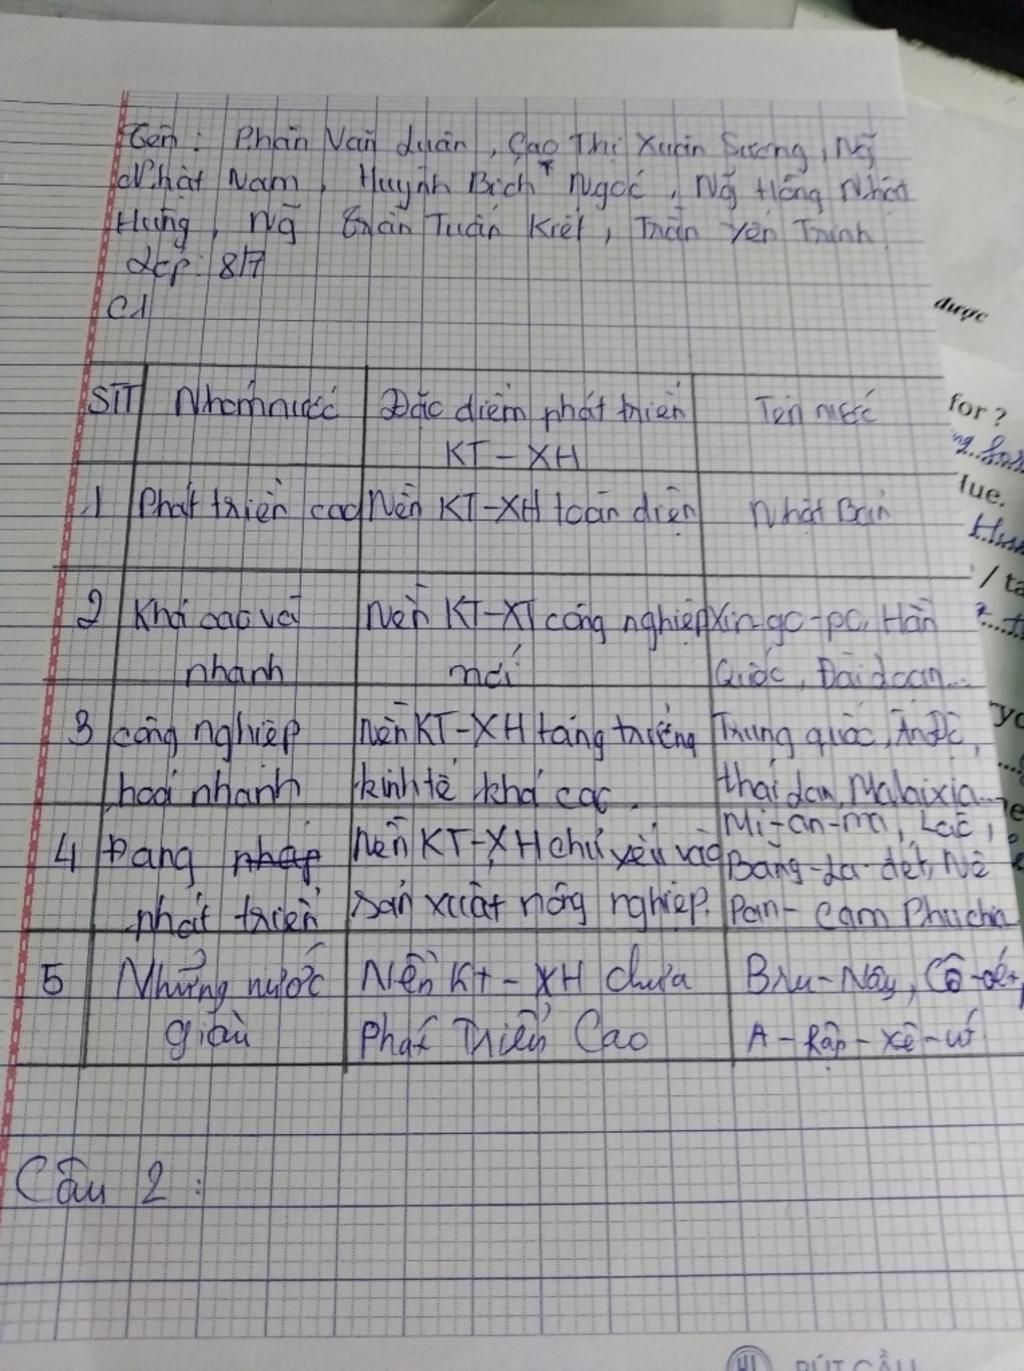 Tên: Phan Văn Luân, Cao Thị Xuân Sương, Ng̃
Nhật Nam, Huỳnh Bích Ngọc, Ng̃ Hồng Nhân
Hưng, Ng̃ Trần Tuấn Kiệt, Trần Yến Trinh
Lớp: 8/7
C1
STT Nhóm nước Đặc điểm phát triển Tên nước
KT - XH
1 Phát triển cao Nền KT-XH toàn diện Nhật Bản
2 Khá cao và Nền KT-XT công nghiệp Xin-go-po, Hàn
nhanh mới Quốc, Đài doan...
3 công nghiệp nền KT-XH tăng trưởng Trung quốc, Ấn Độ,
hoá nhanh kinh tế khá cao. thái dan, Malaixia...
4 Đang phát Nền KT-XH chủ yếu vào Mi-an-ma, Lào,
Băng-la-đét, Nê
phát triển sản xuất nông nghiệp. Pan- Cam Phuchia
5 Những nước Nền KT - XH chưa Bru-Nây, Cô-oét,
giàu Phát Triển Cao A - Rập - Xê - út
Câu 2 :
được
for?
lue.
BÚT CẦU